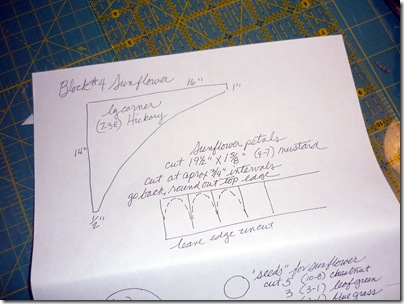 Block #4 Sunflower
16"
1"
lg corner
(7-3E) Hickory
14"
1/2"
Sunflower petals
cut 19 1/2" X 1 5/8" (4-7) mustard
cut at aprox 3/4" intervals
go back, round out top edge
leave edge uncut
"seeds" for sunflower
cut 5 (10-8) chestnut
3 (3-1) leaf green
blue grass